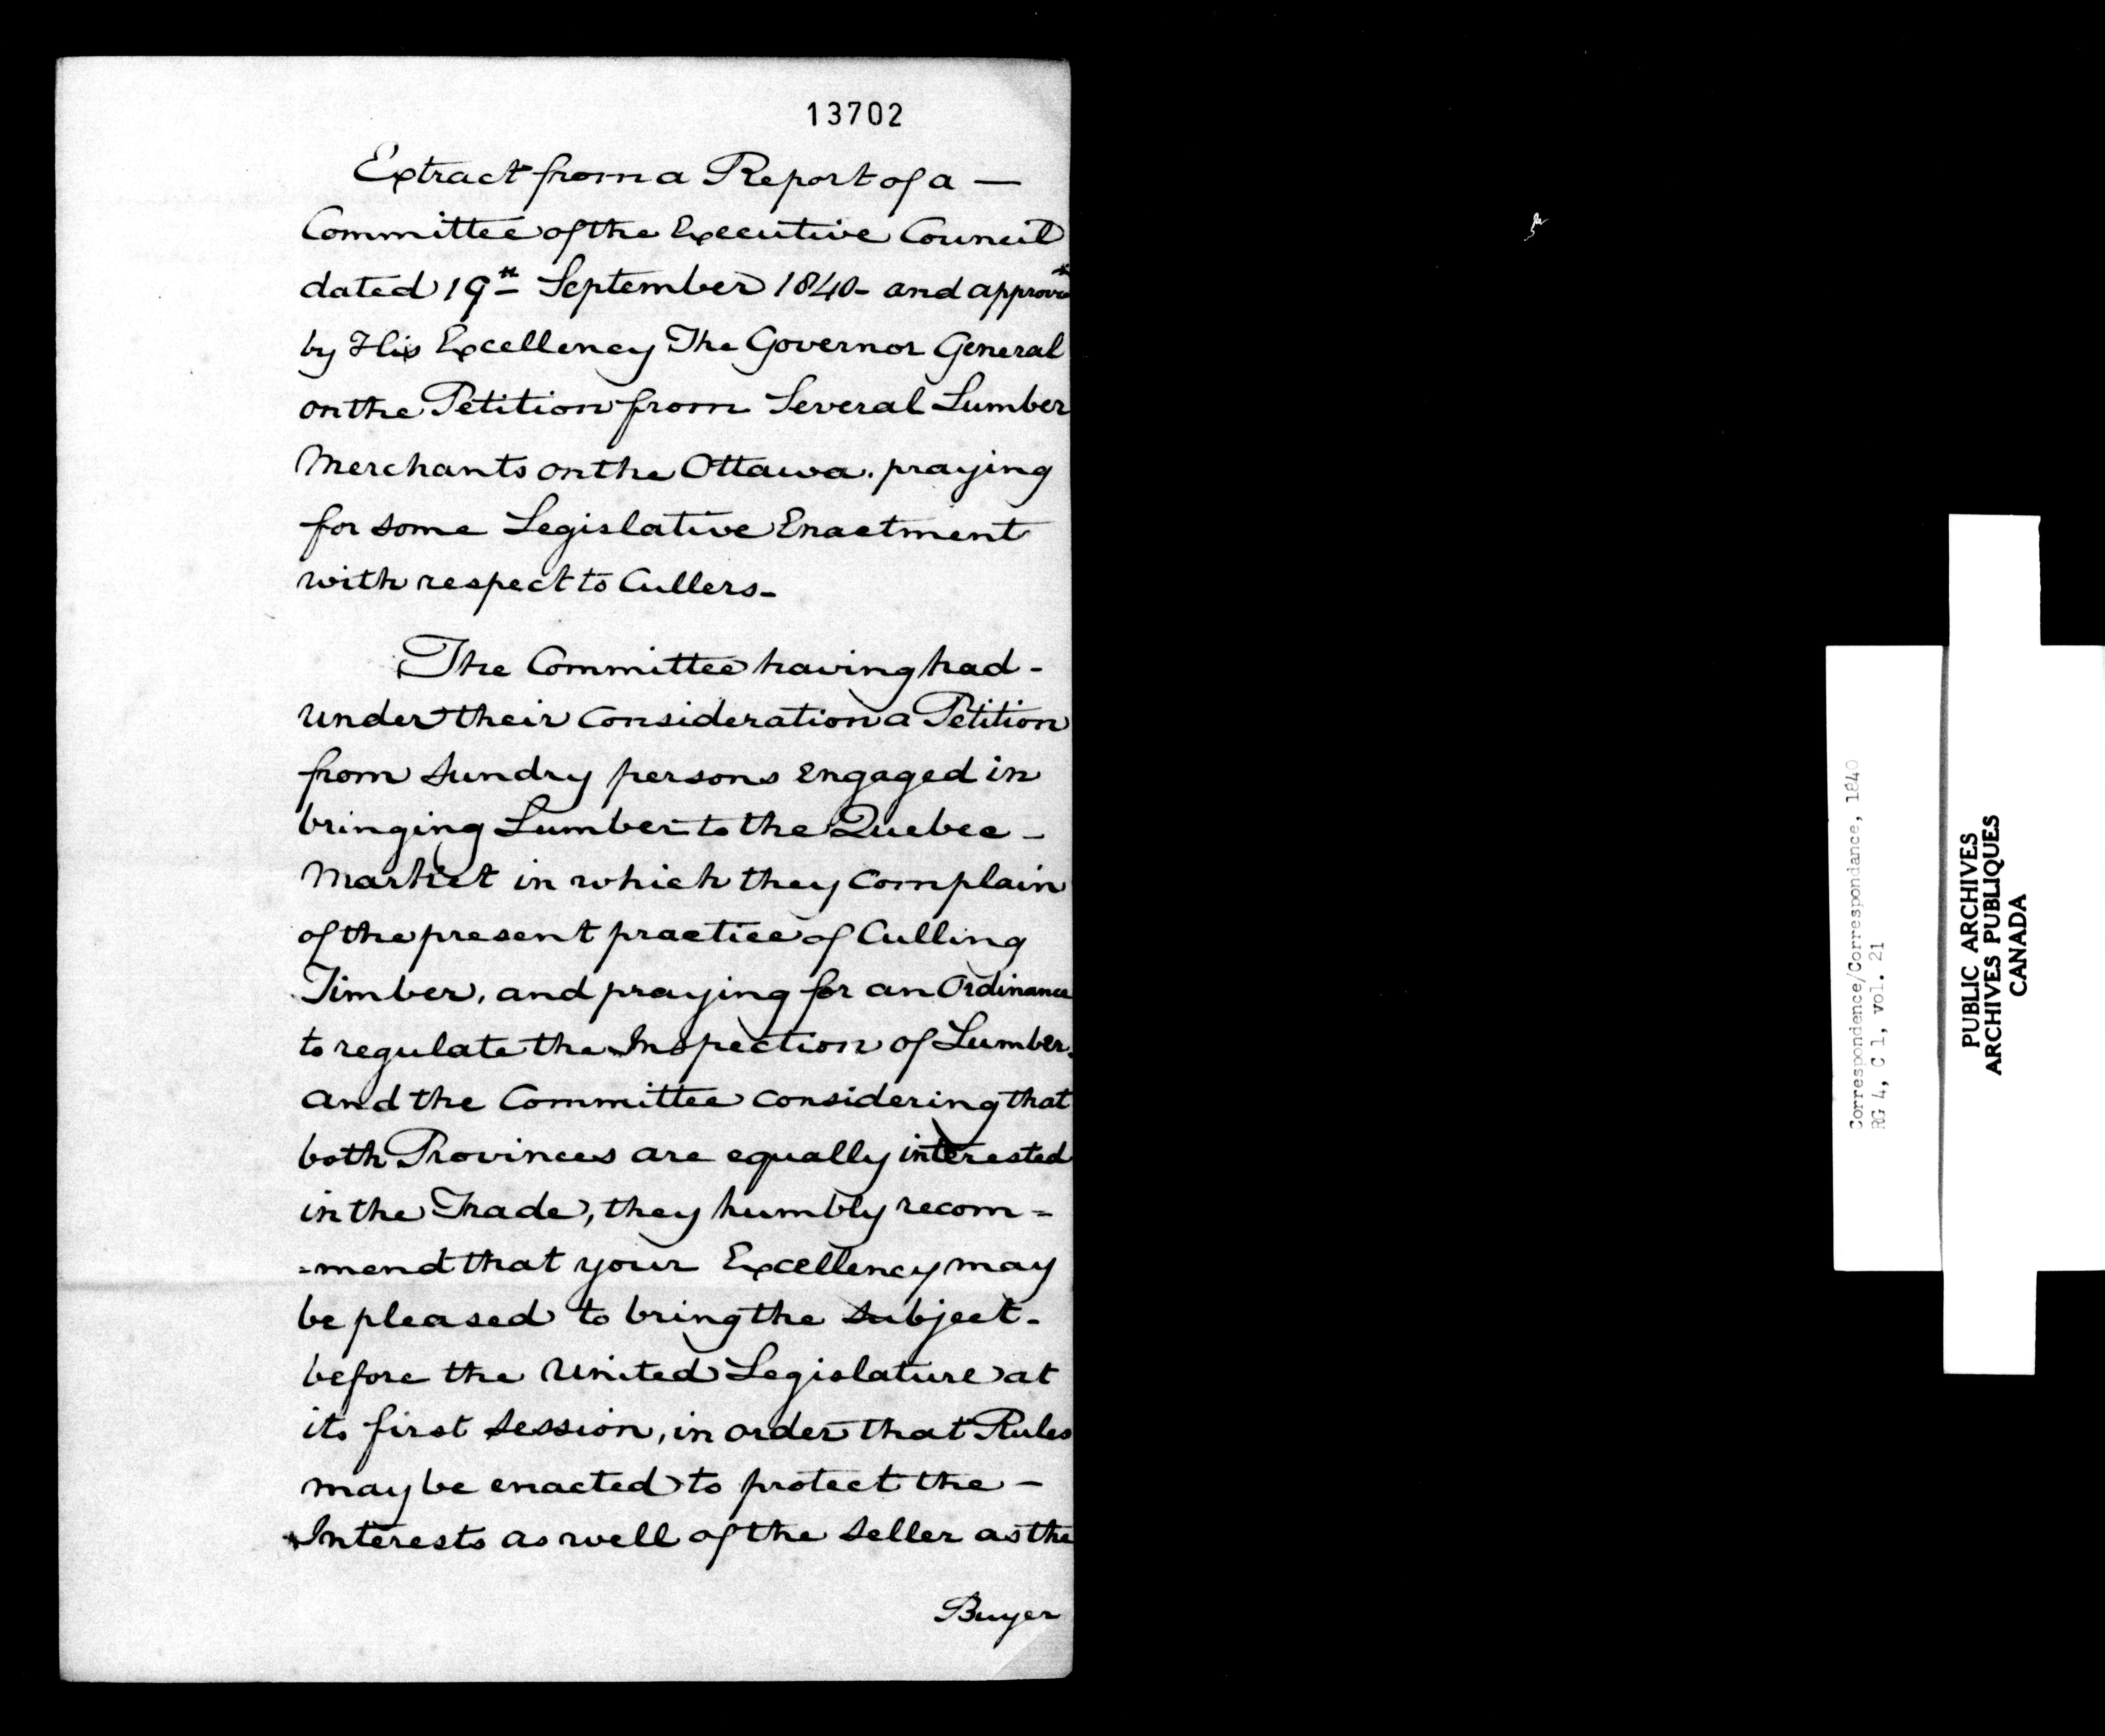 13702
Extract from a Report of a —
Committee of the Executive Council
dated 19th September 1840 - and approved
by His Excellency The Governor General
on the Petition from Several Lumber
Merchants on the Ottawa. praying
for some Legislative Enactment
with respect to Cullers -
The Committee having had -
under their Consideration a Petition
from Sundry persons engaged in
bringing Lumber to the Quebec -
Market in which they Complain
of the present practice of Culling
Timber, and praying for an Ordinance
to regulate the Inspection of Lumber.
and the Committee considering that
both Provinces are equally interested
in the Trade, they humbly recom =
=mend that your Excellency may
be pleased to bring the Subject -
before the United Legislature at
its first Session, in order that Rules
may be enacted to protect the —
Interests as well of the Seller as the
Buyer
Correspondence/Correspondance, 1840
RG 4, C 1, vol. 21
PUBLIC ARCHIVES
ARCHIVES PUBLIQUES
CANADA